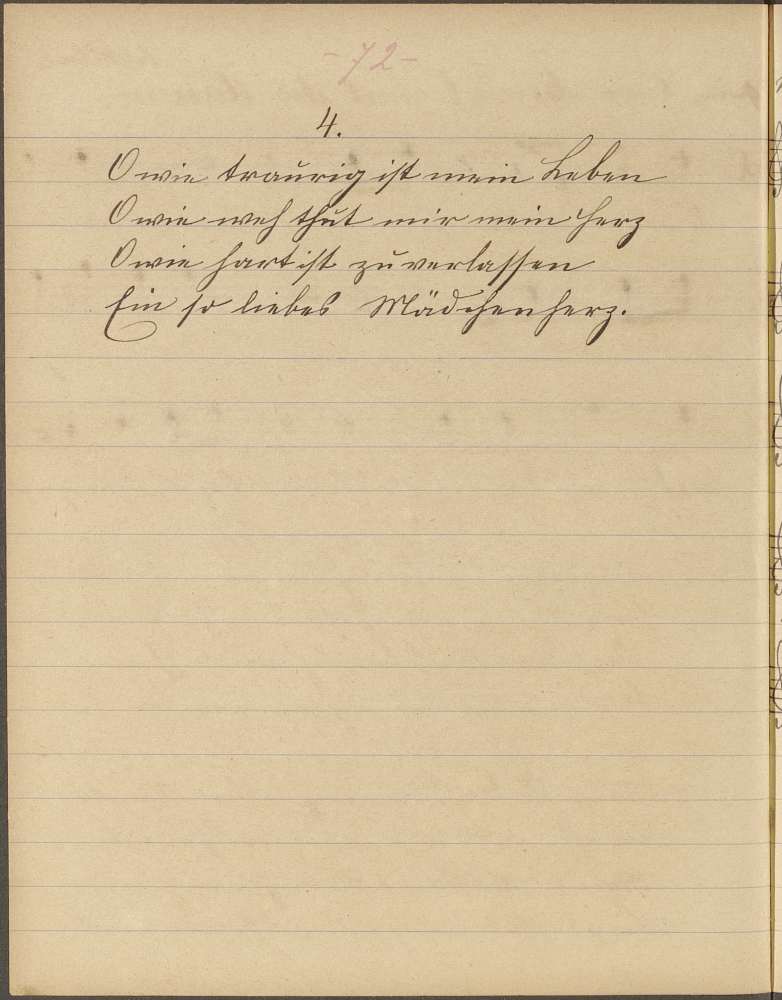 -72-
4.
O wie traurig ist mein Leben
O wie weh thut mir mein Herz
O wie hart ist zu verlassen
Ein so liebes Mädchenherz.